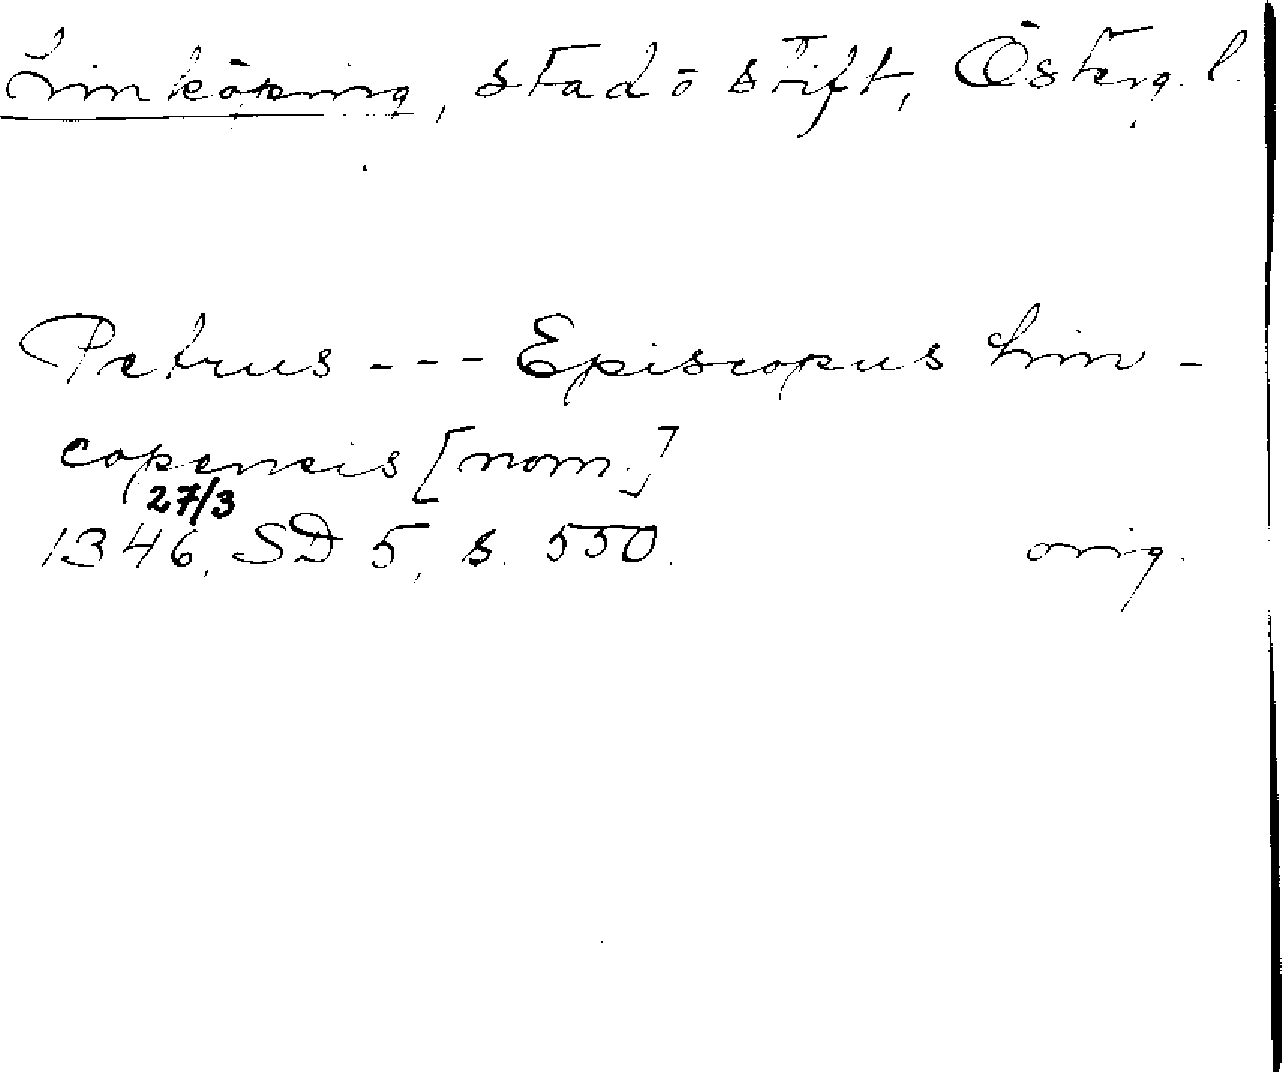 Linköping, stad o stift, Österg. l.
Petrus --- Episcopus Lin-
copensis [nom.]
27/3
1346, SD 5, s. 550. orig.